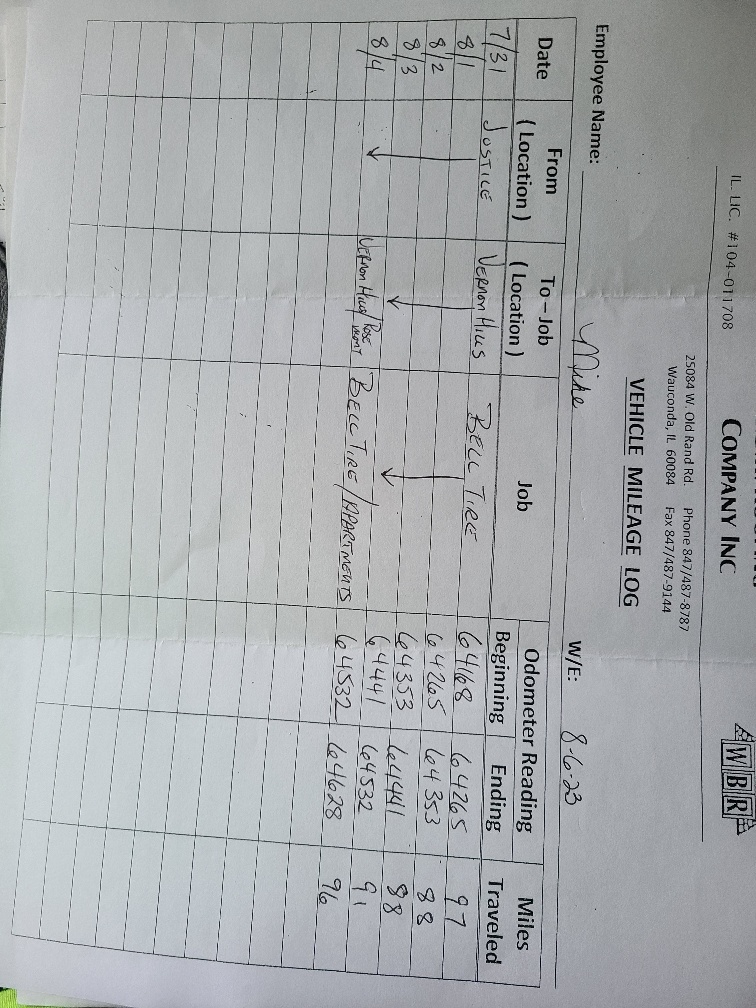 COMPANY INC
WBR
IL. LIC. #104-011708
25084 W. Old Rand Rd. Phone 847/487-8787
Wauconda, IL 60084 Fax 847/487-9144
VEHICLE MILEAGE LOG
Employee Name: Mike W/E: 8-6-23
Date From (Location) To – Job (Location) Job Odometer Reading Beginning Ending Miles Traveled
7/31 JUSTICE VERNON HILLS BELL TIRE 64168 64265 97
8/1 64265 64353 88
8/2 64353 64441 88
8/3 64441 64532 91
8/4 VERNON HILLS/ROSEMONT BELL TIRE/APARTMENTS 64532 64628 96